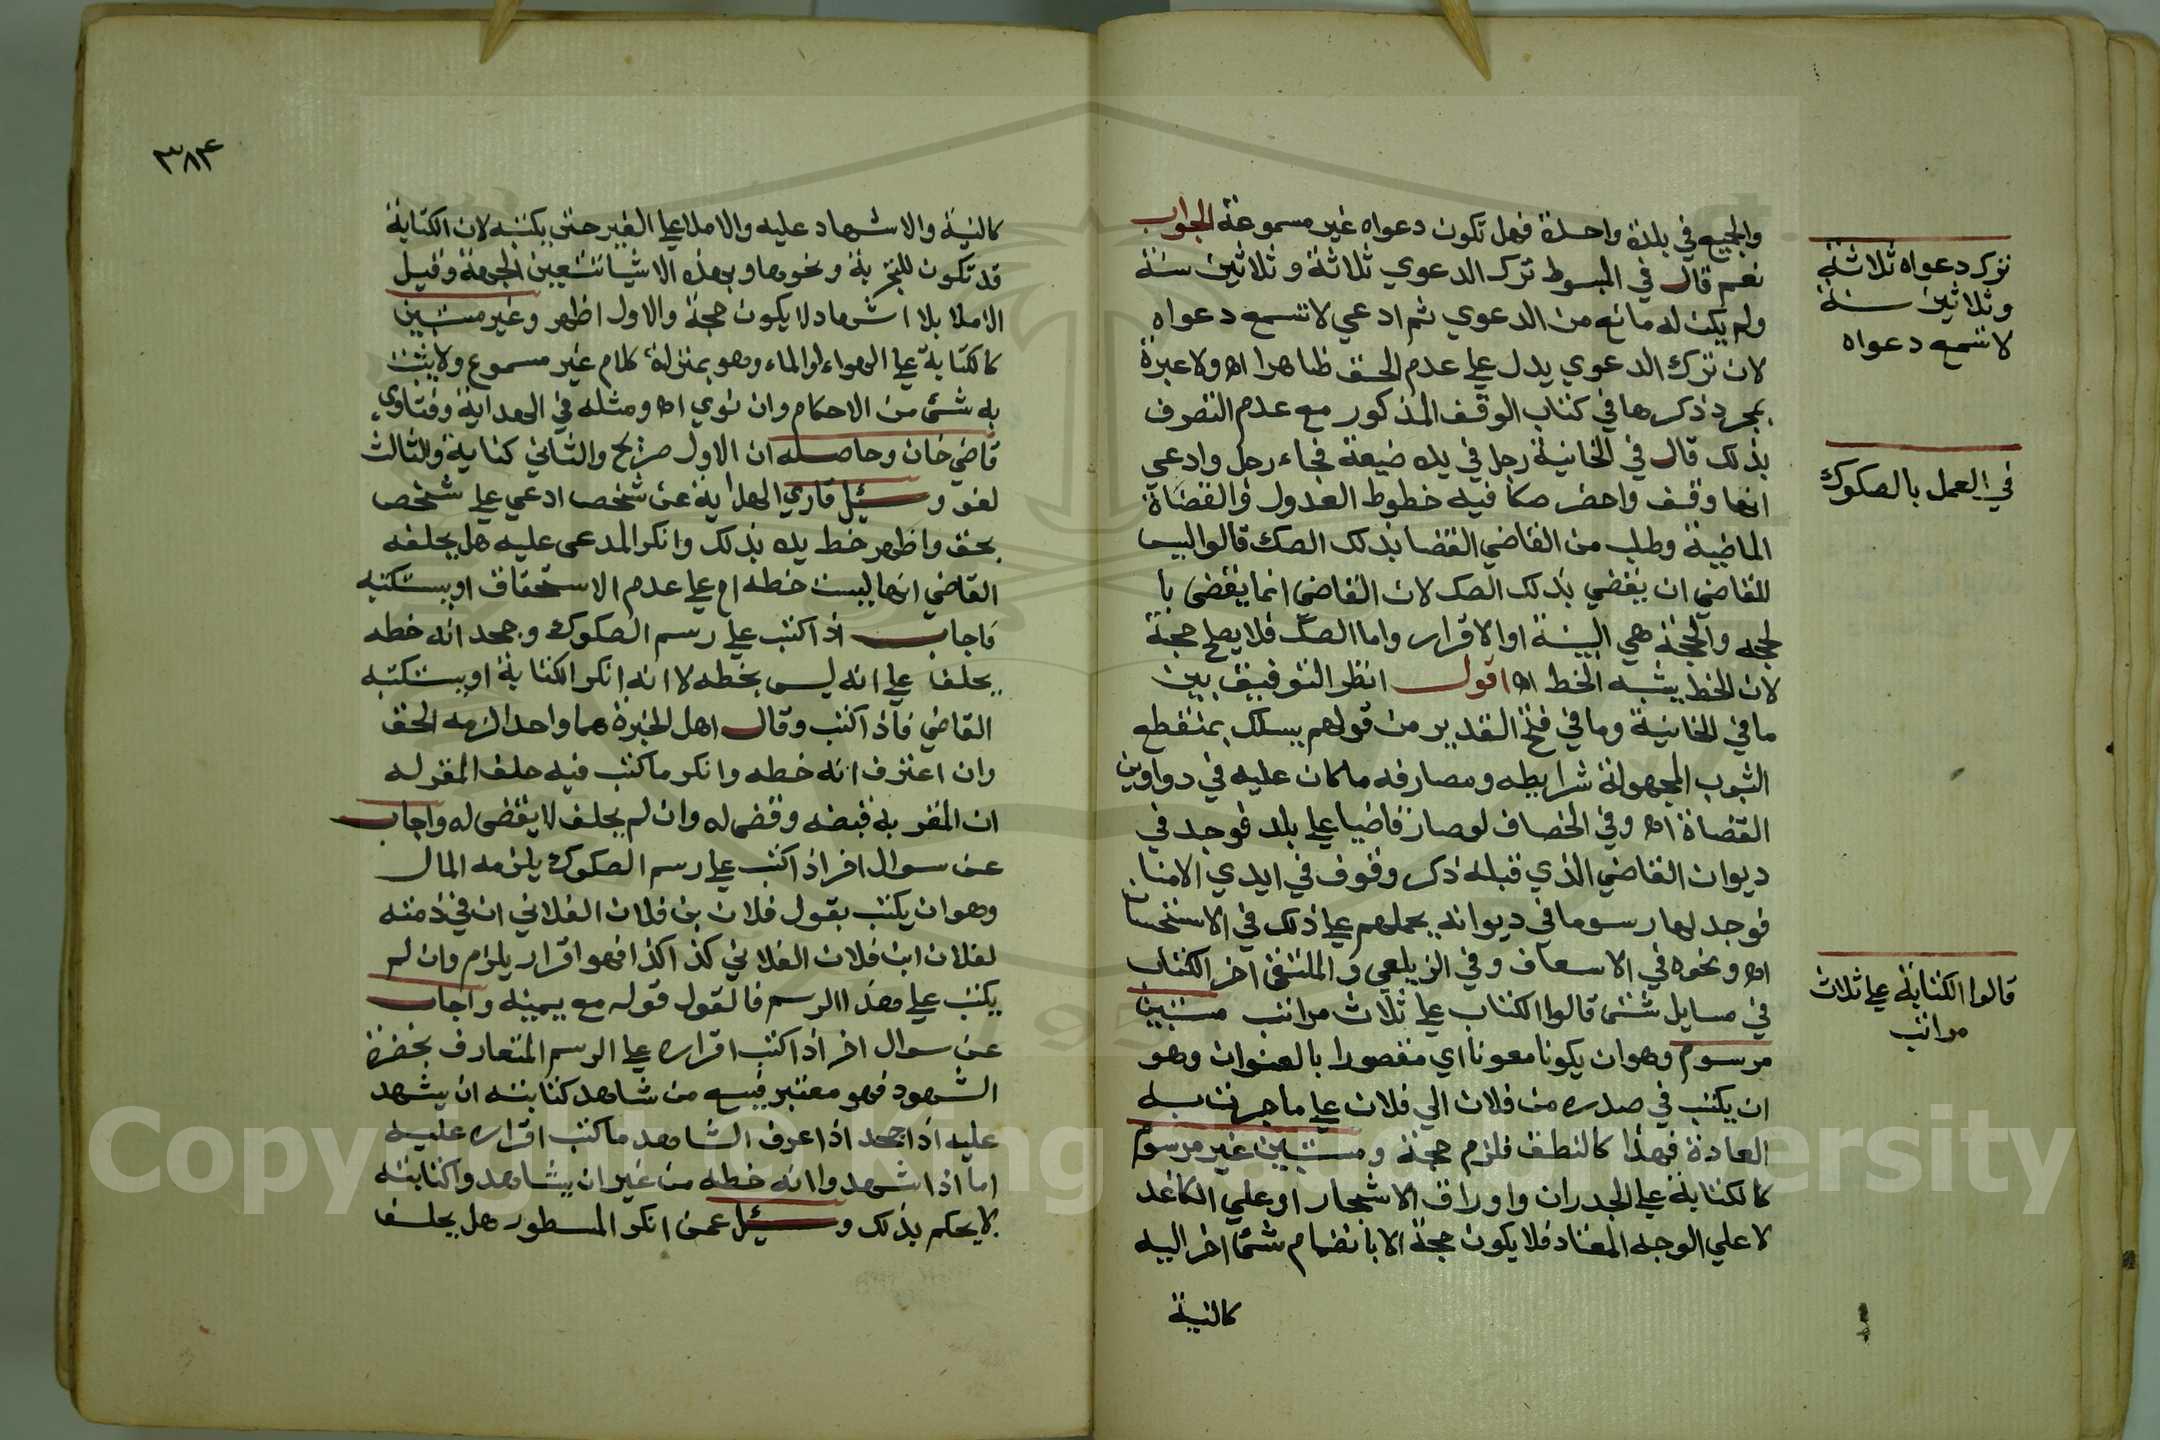 والجميع في بلدة واحدة فهل تكون دعواه غير مسموعة الجواب
نعم قال في المبسوط ترك الدعوي ثلاثة وثلاثين سنة
ولم يكن له مانع من الدعوي ثم ادعي لا تسمع دعواه
لان ترك الدعوي يدل علي عدم الحق ظاهرا اه ولا عبرة
بمجرد ذكرها في كتاب الوقف المذكور مع عدم التصرف
بذلك قال في الخانية رجل في يده ضيعة فجاء رجل وادعي
انها وقف واحضر صكا فيه خطوط العدول والقضاة
الماضية وطلب من القاضي القضا بذلك الصك قالوا ليس
للقاضي ان يقضي بذلك الصك لان القاضي انما يقضي با
لحجه والحجة هي البينة او الاقرار واما الصك فلا يصلح حجة
لان الخط يشبه الخط اه اقول انظر التوفيق بين
ما في الخانية وما في فتح القدير من قولهم يسلك بمنقطع
الثبوت المجهولة شرايطه ومصارفه ما كان عليه في دواوين
القضاة اه وفي الخصاف لو صار قاضيا علي بلد فوجد في
ديوان القاضي الذي قبله ذكر وقوف في ايدي الامنا
فوجد لها رسوما في ديوانه يحملهم علي ذلك في الاستحسان
اه ونحوه في الاسعاف وفي الزيلعي والملتقي اخر الكتاب
في مسايل شتي قالوا الكتاب علي ثلاث مراتب مستبين
مرسوم وهو ان يكونا معونا اي مقصورا بالعنوان وهو
ان يكتب في صدره من فلان الي فلان علي ما جرت به
العادة فهذا كالنطق فلزم حجة ومستبين غير مرسوم
كالكتابة علي الجدران واوراق الاشجار او علي الكاغد
لا علي الوجه المعتاد فلا يكون حجة الا بانضمام شئ اخر اليه
كالنية
ترك دعواه ثلاثة
وثلاثين سنة
لا تسمع دعواه
في العمل بالصكوك
قالوا الكتابة علي ثلاث
مراتب
٣٨٤
كالنية والاشهاد عليه والاملا علي الغير حتي يكتبه لان الكتابة
قد تكون للتجربة ونحوها وبهذه الاشيا تتعين الجهة وقيل
الاملا بلا اشهاد لا يكون حجة والاول اظهر وغير مستبين
كالكتابة علي الهواء او الماء وهو بمنزلة كلام غير مسموع ولا يثبت
به شئ من الاحكام وان نوي اه ومثله في الهداية وفتاوي
قاضي خان وحاصله ان الاول صريح والثاني كناية والثالث
لغو وسئيل قاري الهداية عن شخص ادعي علي شخص
بحق واظهر خط يده بذلك وانكر المدعي عليه هل يحلفه
القاضي انها ليست خطه ام علي عدم الاستحقاق او يستكتبه
فاجاب اذا كتب علي رسم الصكوك وجحد انه خطه
يحلف علي انه ليس بخطه لا انه انكر الكتابة او يستكتبه
القاضي فاذا كتب وقال اهل الخبرة هما واحد الزمه الحق
وان اعترف انه خطه وانكر ما كتب فيه حلف المقر له
ان المقر به قبضه وقضي له وان لم يحلف لا يقضي له واجاب
عن سوال اخر اذا كتب علي رسم الصكوك يلزمه المال
وهو ان يكتب يقول فلان بن فلان الفلاني ان في ذمته
لفلان ابن فلان الفلاني كذا كذا فهو اقرار يلزم وان لم
يكتب علي هذا الرسم فالقول قوله مع يمينه واجاب
عن سوال اخر اذا كتب اقراره علي الرسم المتعارف بحضرة
الشهود فهو معتبر فيسع من شاهد كتابته ان يشهد
عليه اذا جحد اذا عرف الشاهد ما كتب اقراره عليه
اما اذا شهدوا انه خطه من غير ان يشاهدوا كتابته
لا يحكم بذلك وسئيل عمن انكر المسطور هل يحلف
Copyright © King Saud University